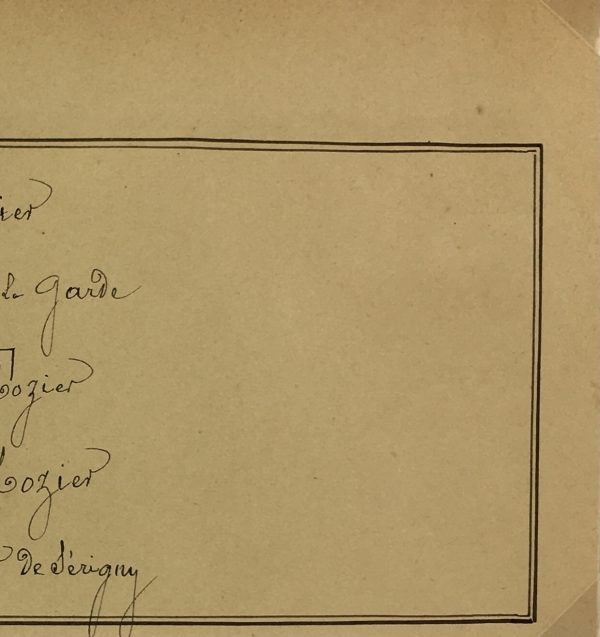 la Garde
Hozier
Hozier
de Sérigny